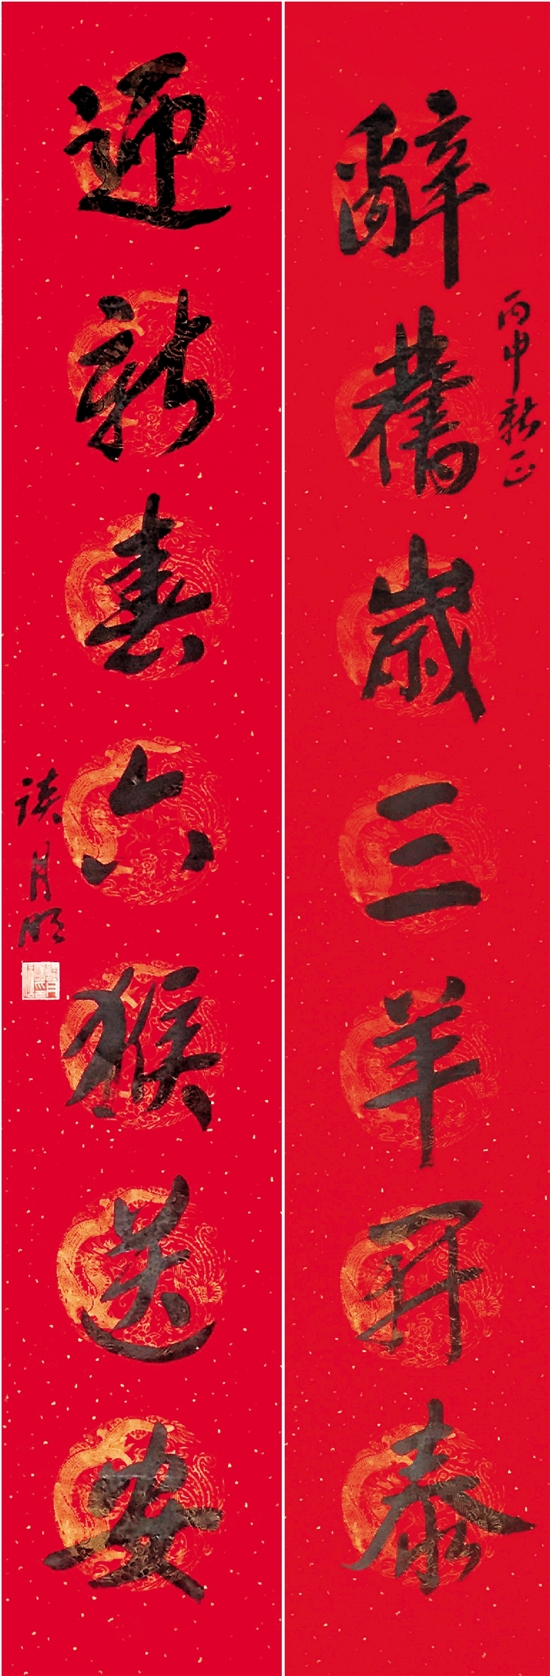 丙申新正
辭舊歲三羊开泰
迎新春六猴送安
谈月明